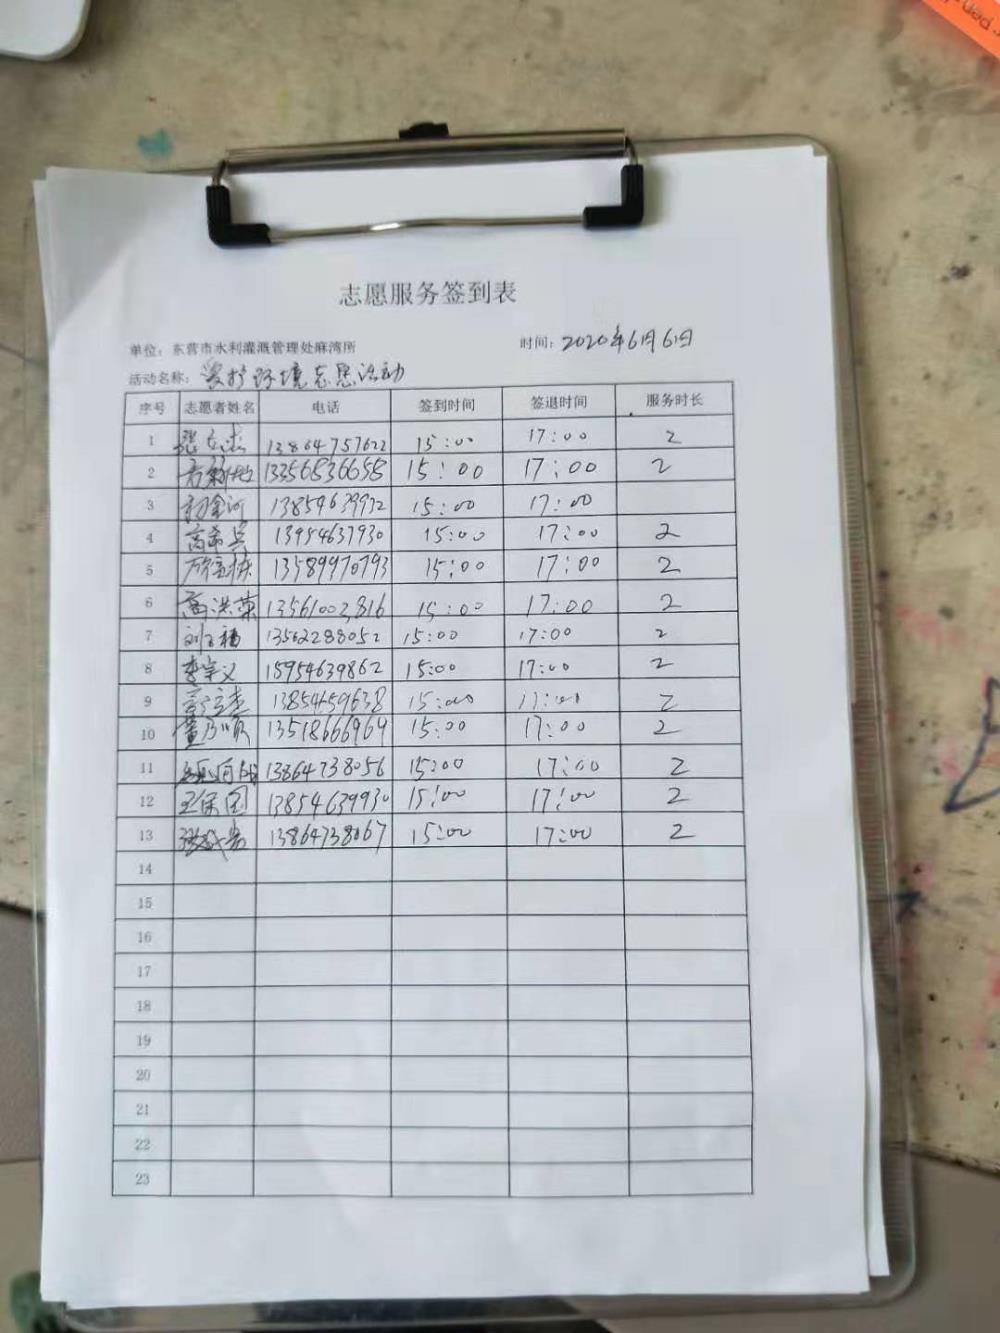 志愿服务签到表
单位：东营市水利灌溉管理处麻湾所 时间：2020年6月6日
活动名称：爱护环境志愿活动
序号 志愿者姓名 电话 签到时间 签退时间 服务时长
1 13864757622 15:00 17:00 2
2 13356836658 15:00 17:00 2
3 13854639972 15:00 17:00
4 高希兵 13954637930 15:00 17:00 2
5 13589970793 15:00 17:00 2
6 高洪荣 13561003816 15:00 17:00 2
7 刘玉福 13562288052 15:00 17:00 2
8 李宗义 15954639862 15:00 17:00 2
9 13854659638 15:00 17:00 2
10 董乃顺 13518666964 15:00 17:00 2
11 13864738056 15:00 17:00 2
12 王保国 13854639930 15:00 17:00 2
13 13864738067 15:00 17:00 2
14
15
16
17
18
19
20
21
22
23